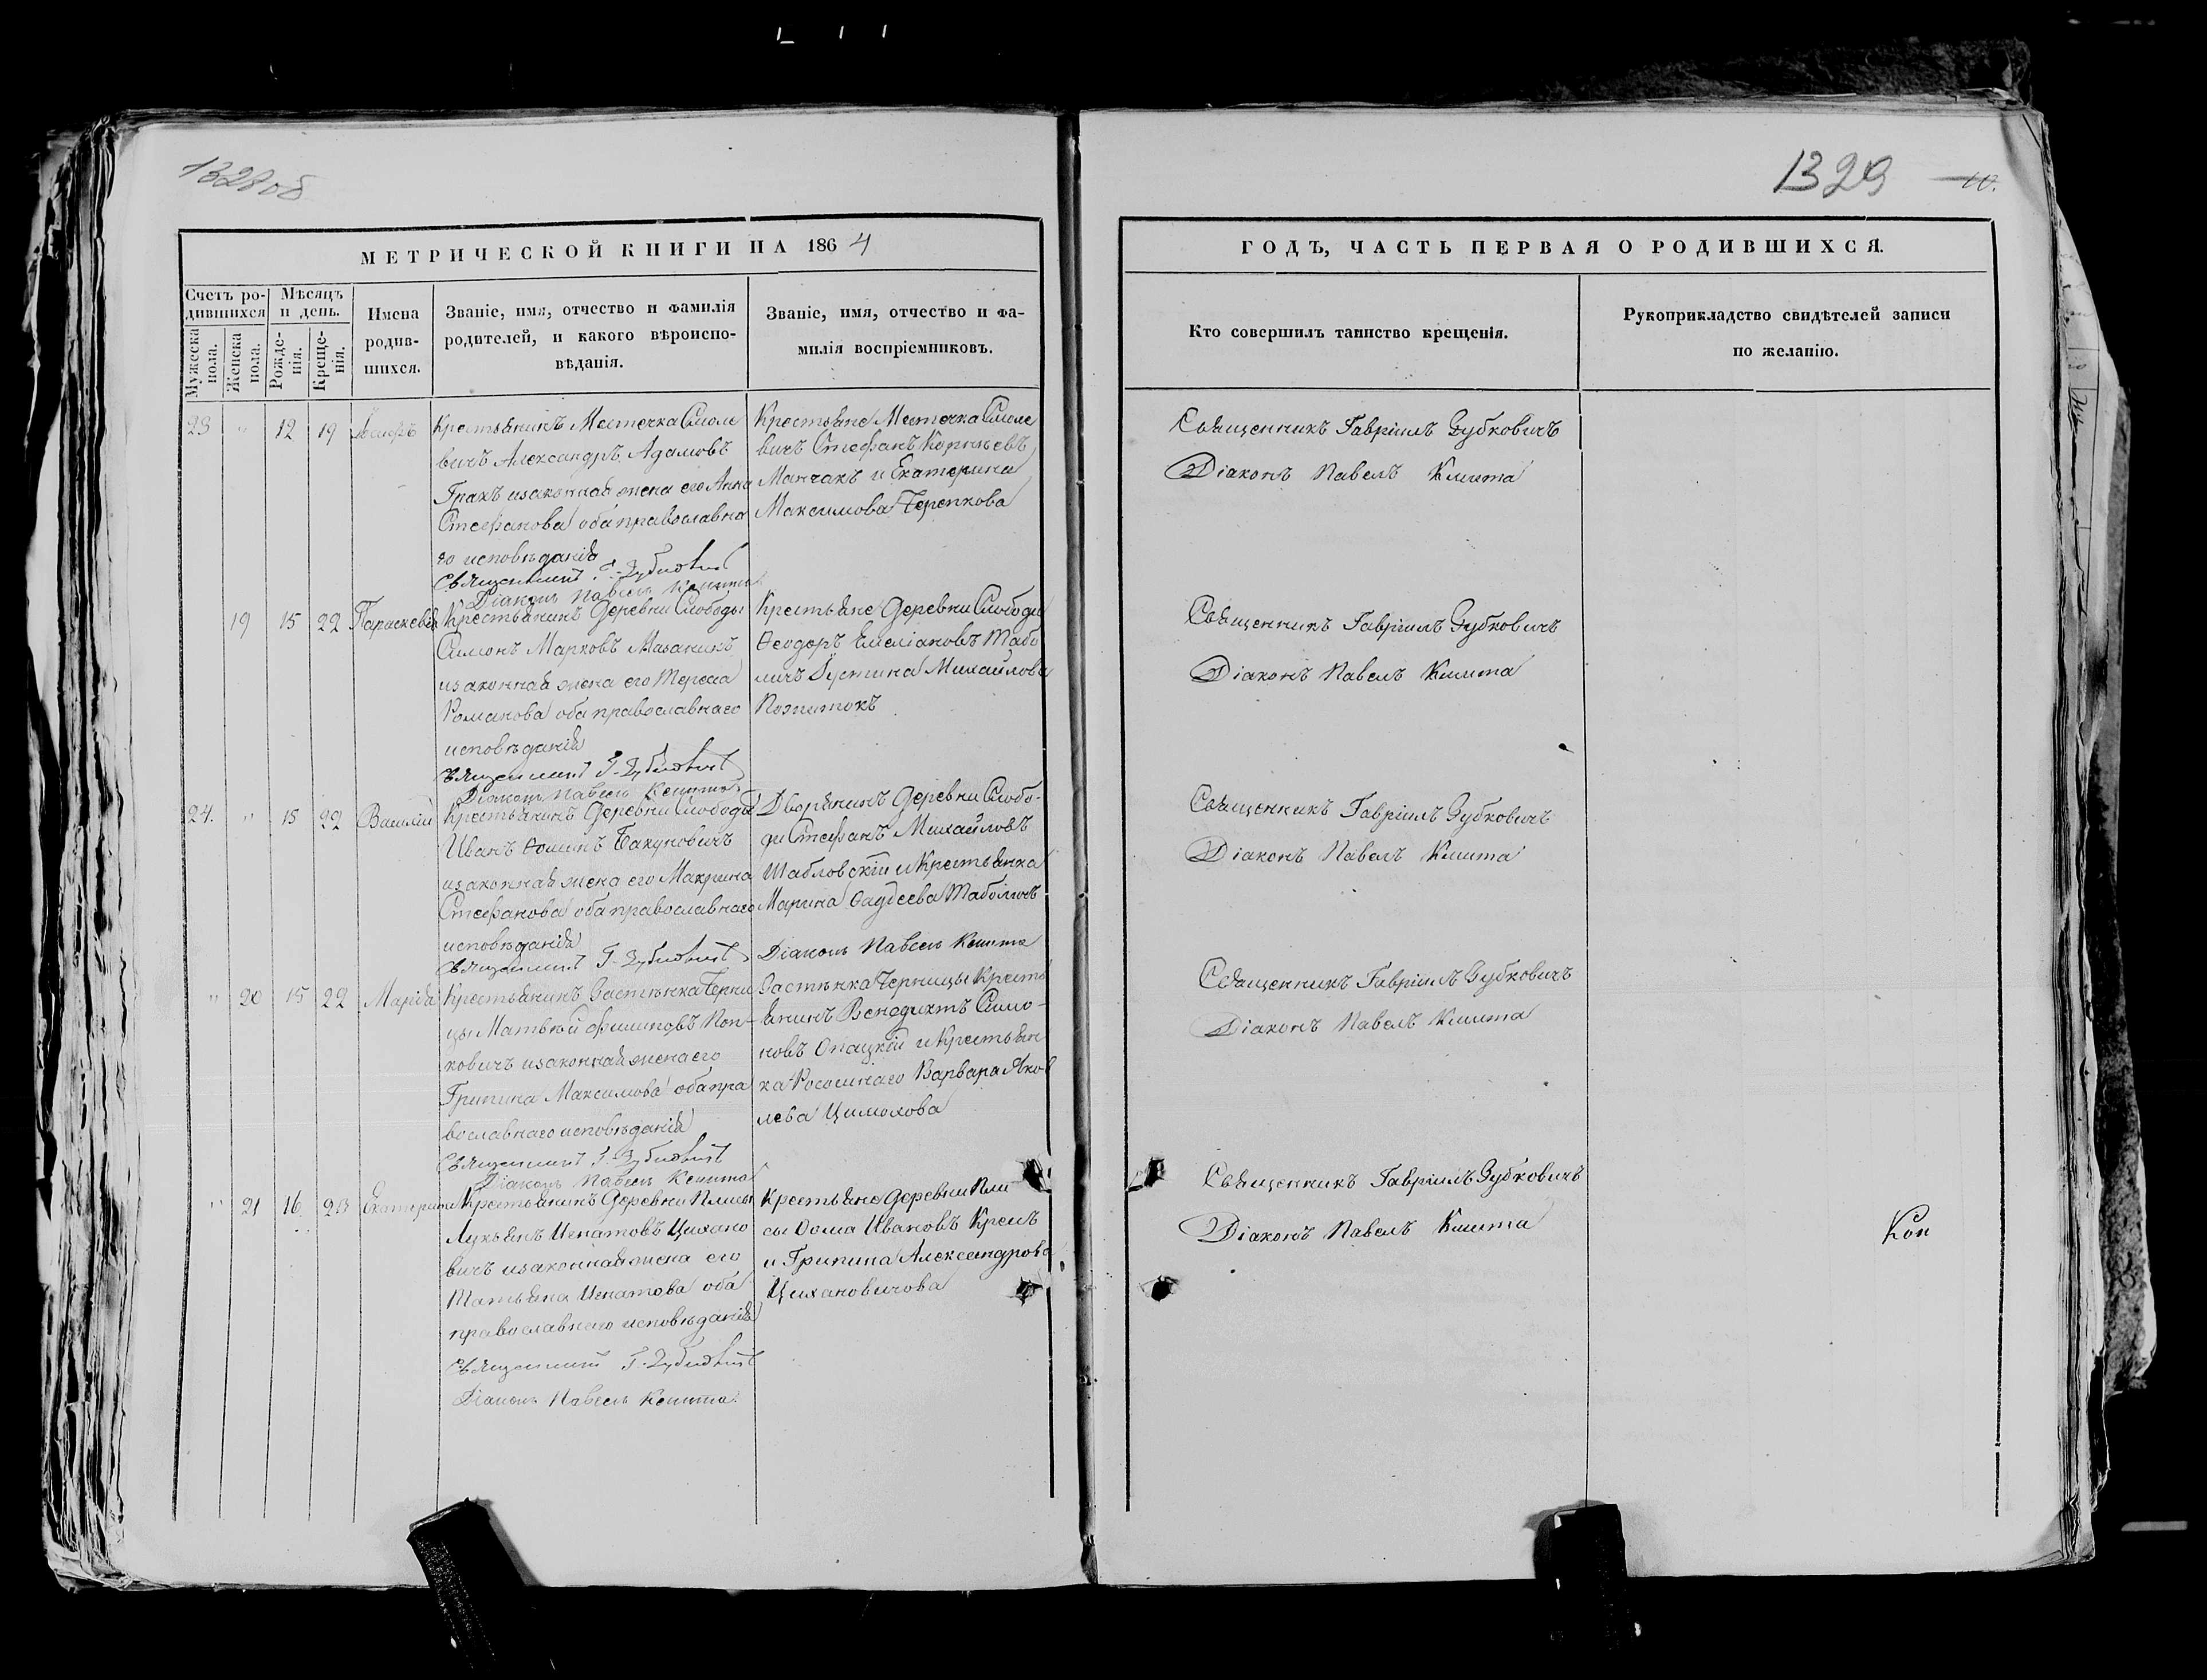 1328 об
1329
10.
МЕТРИЧЕСКОЙ КНИГИ НА 1864
ГОДЪ, ЧАСТЬ ПЕРВАЯ О РОДИВШИХСЯ.
Счетъ ро-
дившихся
Мужеска
пола.
Женска
пола.
Мѣсяцъ
и день.
Рожде-
нія.
Креще-
нія.
Имена
родив-
шихся.
Званіе, имя, отчество и фамилія
родителей, и какого вѣроиспо-
вѣданія.
Званіе, имя, отчество и фа-
милія воспріемниковъ.
Кто совершилъ таинство крещенія.
Рукоприкладство свидѣтелей записи
по желанію.
23 " 12 19
Крестьянинъ Местечка Смоле
вичъ Александръ Адамовъ
Гракъ изаконная жена его Анна
Стефанова оба православна
го исповѣданія
Священникъ Г. Зубковичъ
Діаконъ Павелъ Кмита
Крестьяне Местечка Смоле
вичъ Стефанъ Корньевъ
Манчакъ и Екатерина
Максимова Черепкова
Священникъ Гавріилъ Зубковичъ
Діаконъ Павелъ Кмита
19 15 22 Параскевія
Крестьянинъ Деревни Слободы
Симонъ Марковъ Мазаникъ
изаконная жена его Тереса
Романова оба православнаго
исповѣданія
Священникъ Г. Зубковичъ
Діаконъ Павелъ Кмита
Крестьяне Деревни Слободы
Ѳеодоръ Емеліановъ Табо
личъ Іустина Михайлова
Священникъ Гавріилъ Зубковичъ
Діаконъ Павелъ Кмита
24. " 15 22 Василій
Крестьянинъ Деревни Слободы
Иванъ Ѳоминъ Бакуновичъ
изаконная жена его Макрина
Стефанова оба православнаго
исповѣданія
Священникъ Г. Зубковичъ
Дворянинъ Деревни Слобо-
ды Стефанъ Михайловъ
Шабловскій и Крестьянка
Марина Ѳаддеева Таболичъ
Діаконъ Павелъ Кмита
Священникъ Гавріилъ Зубковичъ
Діаконъ Павелъ Кмита
" 20 15 22 Марія
Крестьянинъ Застѣнка Черни
цы Матвѣй Филиповъ Поп-
ковичъ изаконная жена его
Грипина Максимова оба пра
вославнаго исповѣданія
Священникъ Г. Зубковичъ
Діаконъ Павелъ Кмита
Застѣнка Черницы Кресть
янинъ Венедиктъ Симо-
новъ Опацкій и Крестьян
ка Росошнаго Варвара Яков
лева Цимохова
Священникъ Гавріилъ Зубковичъ
Діаконъ Павелъ Кмита
" 21 16 23 Екатерина
Крестьянинъ Деревни Плисы
Лукьянъ Игнатовъ Цихано
вичъ изаконная жена его
Татьяна Игнатова оба
православнаго исповѣданія
Священникъ Г. Зубковичъ
Діаконъ Павелъ Кмита.
Крестьяне Деревни Пли
сы Ѳома Ивановъ Крень
и Грипина Александрова
Цихановичова
Священникъ Гавріилъ Зубковичъ
Діаконъ Павелъ Кмита
Кон